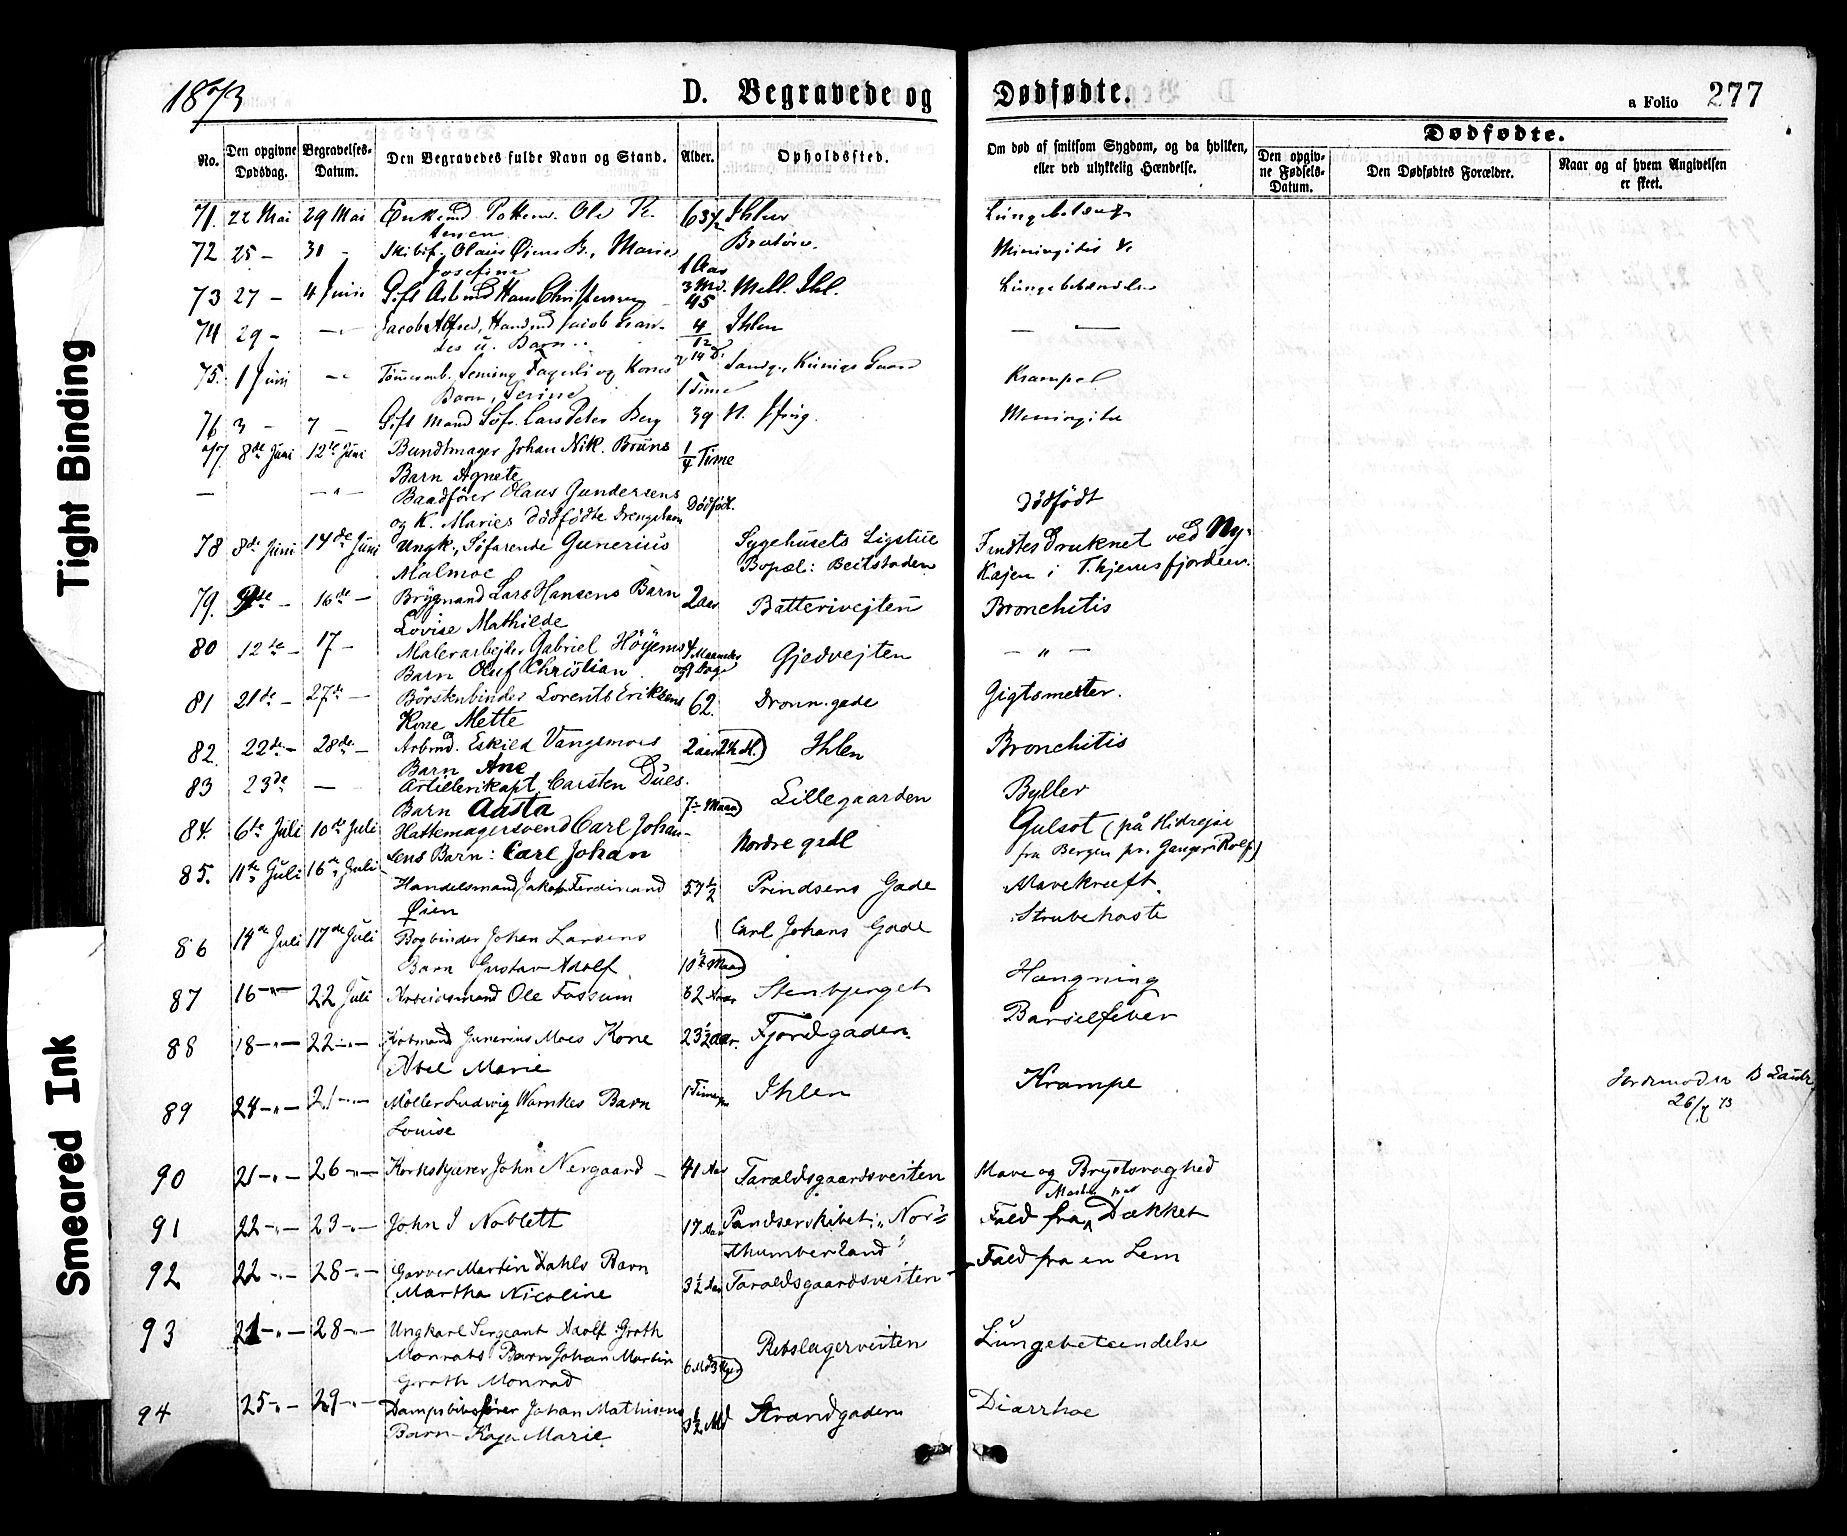 1873
D. Begravede og Dødfødte.
a Folio 277
No.
Den opgivne Dødsdag.
Begravelses-Datum.
Den Begravedes fulde Navn og Stand.
Alder.
Opholdssted.
Om død af smitsom Sygdom, og da hvilken, eller ved ulykkelig Hændelse.
Dødfødte.
Den opgivne Fødsels-Datum.
Den Dødfødtes Forældre.
Naar og af hvem Angivelsen er skeet.
71. 22 Mai 29 Mai Enkemd Ole
72 25 — 31 - Olaus Øiens B., Marie Bratøre. Meningitis
Josefine 1 Aar
73 27 — 4 Juni Gift Arbmd Hans Christensen 3 Md. 45 Mell. Ihl.
74 29 - —"— Jacob Alfred, Jacob 4/12 Ihlen — —
u. Barn
75. 1 Juni Fagerli og Kones 14 D. Krampe
Barn, 1 Time
76 3 - 7 - Gift Mand Lars Peter Berg 39
77 8de Juni 12te Juni Bundtmager Johan Nik. Bruns 1/4 Time
Barn Agnete
— —"— Baadfører Olaus Gundersens Dødfødt. Dødfødt
og K. Maries dødfødte Drengebarn
78 8de Juni 14de Juni Ungk., Søfarende Gunerius Sygehusets Ligstue Fundtes Druknet ved Ny-
Malmoe Bopæl: Beitstaden Kajen i Thjemsfjorden.
79. — 16de — Brygmand Lars Hansens Barn 2 aar Batterivejten Bronchitis
Lovise Mathilde
80 12te — 17 — Malerarbejder Gabriel Höyems 4 Maaneder Gjedvejten — " —
Barn Oluf Christian og Dage
81 21de — 27de — Börstenbinder Lorents Eriksens 62. Dronn. gade Gigtsmerter.
Kone Mette
82. 22de — 28de — Arbmd. Eskild Vangsmoes 2 aar Ihlen Bronchitis
Barn Ane
83 23de — Artillerikapt. Carsten Dües. Lillegaarden Byller
Barn Aasta 7 Maan
84. 6te Juli 10de Juli Hattemagersvend Carl Johan- Nordre gade Gulsot (på Hidrejse
sens Barn: Carl Johan fra Bergen pr. Ganger Rolf)
85. 11te Juli 16de Juli Handelsmand Jakob Ferdinand 57½ Prindsens Gade Mavekræft.
Øien
86 14de Juli 17de Juli Bogbinder Johan Larsens Carl Johans Gade Strubehoste
Barn Gustav Adolf 10½ Maan
87 16—"— 22 Juli Arbeidsmand Ole Fossum 62 Aar Stenbjerget Hængning
88 18—"— 22—"— Kobmand Gunerius Moes Kone 23½ aar. Fjordgaden Barselfeber
Abel Marie
89 24—"— 21—"— Møller Ludvig Warnkes Barn 1 Time Ihlen Krampe Jordemoder
Louise 26/7 73
90 21—"— 26—"— Korkskjærer John Nergaard — 41 Aar Taraldsgaardsveiten Mave og Brystsvaghed
91 22—"— 23—"— John I Noblett 17 Aar Pandserskibet: "Nor- Fald fra Masten paa Dækket
thumberland"
92 22—"— 28—"— Garver Martin Dahls Barn 3½ Aar Taraldsgaardsveiten — Fald fra en Lem
Martha Nicoline
93 21—"— 28—"— Ungkarl Sergeant Adolf Groth Rebslagerveiten Lungebetændelse
Monrads Barn Johan Martin
Groth Monrad
94 25—"— 29—"— Dampskibsfører Johan Mathisens 3½ Md Strandgaden Diarrhoe
Barn Kaja Marie
Tight Binding
Smeared Ink